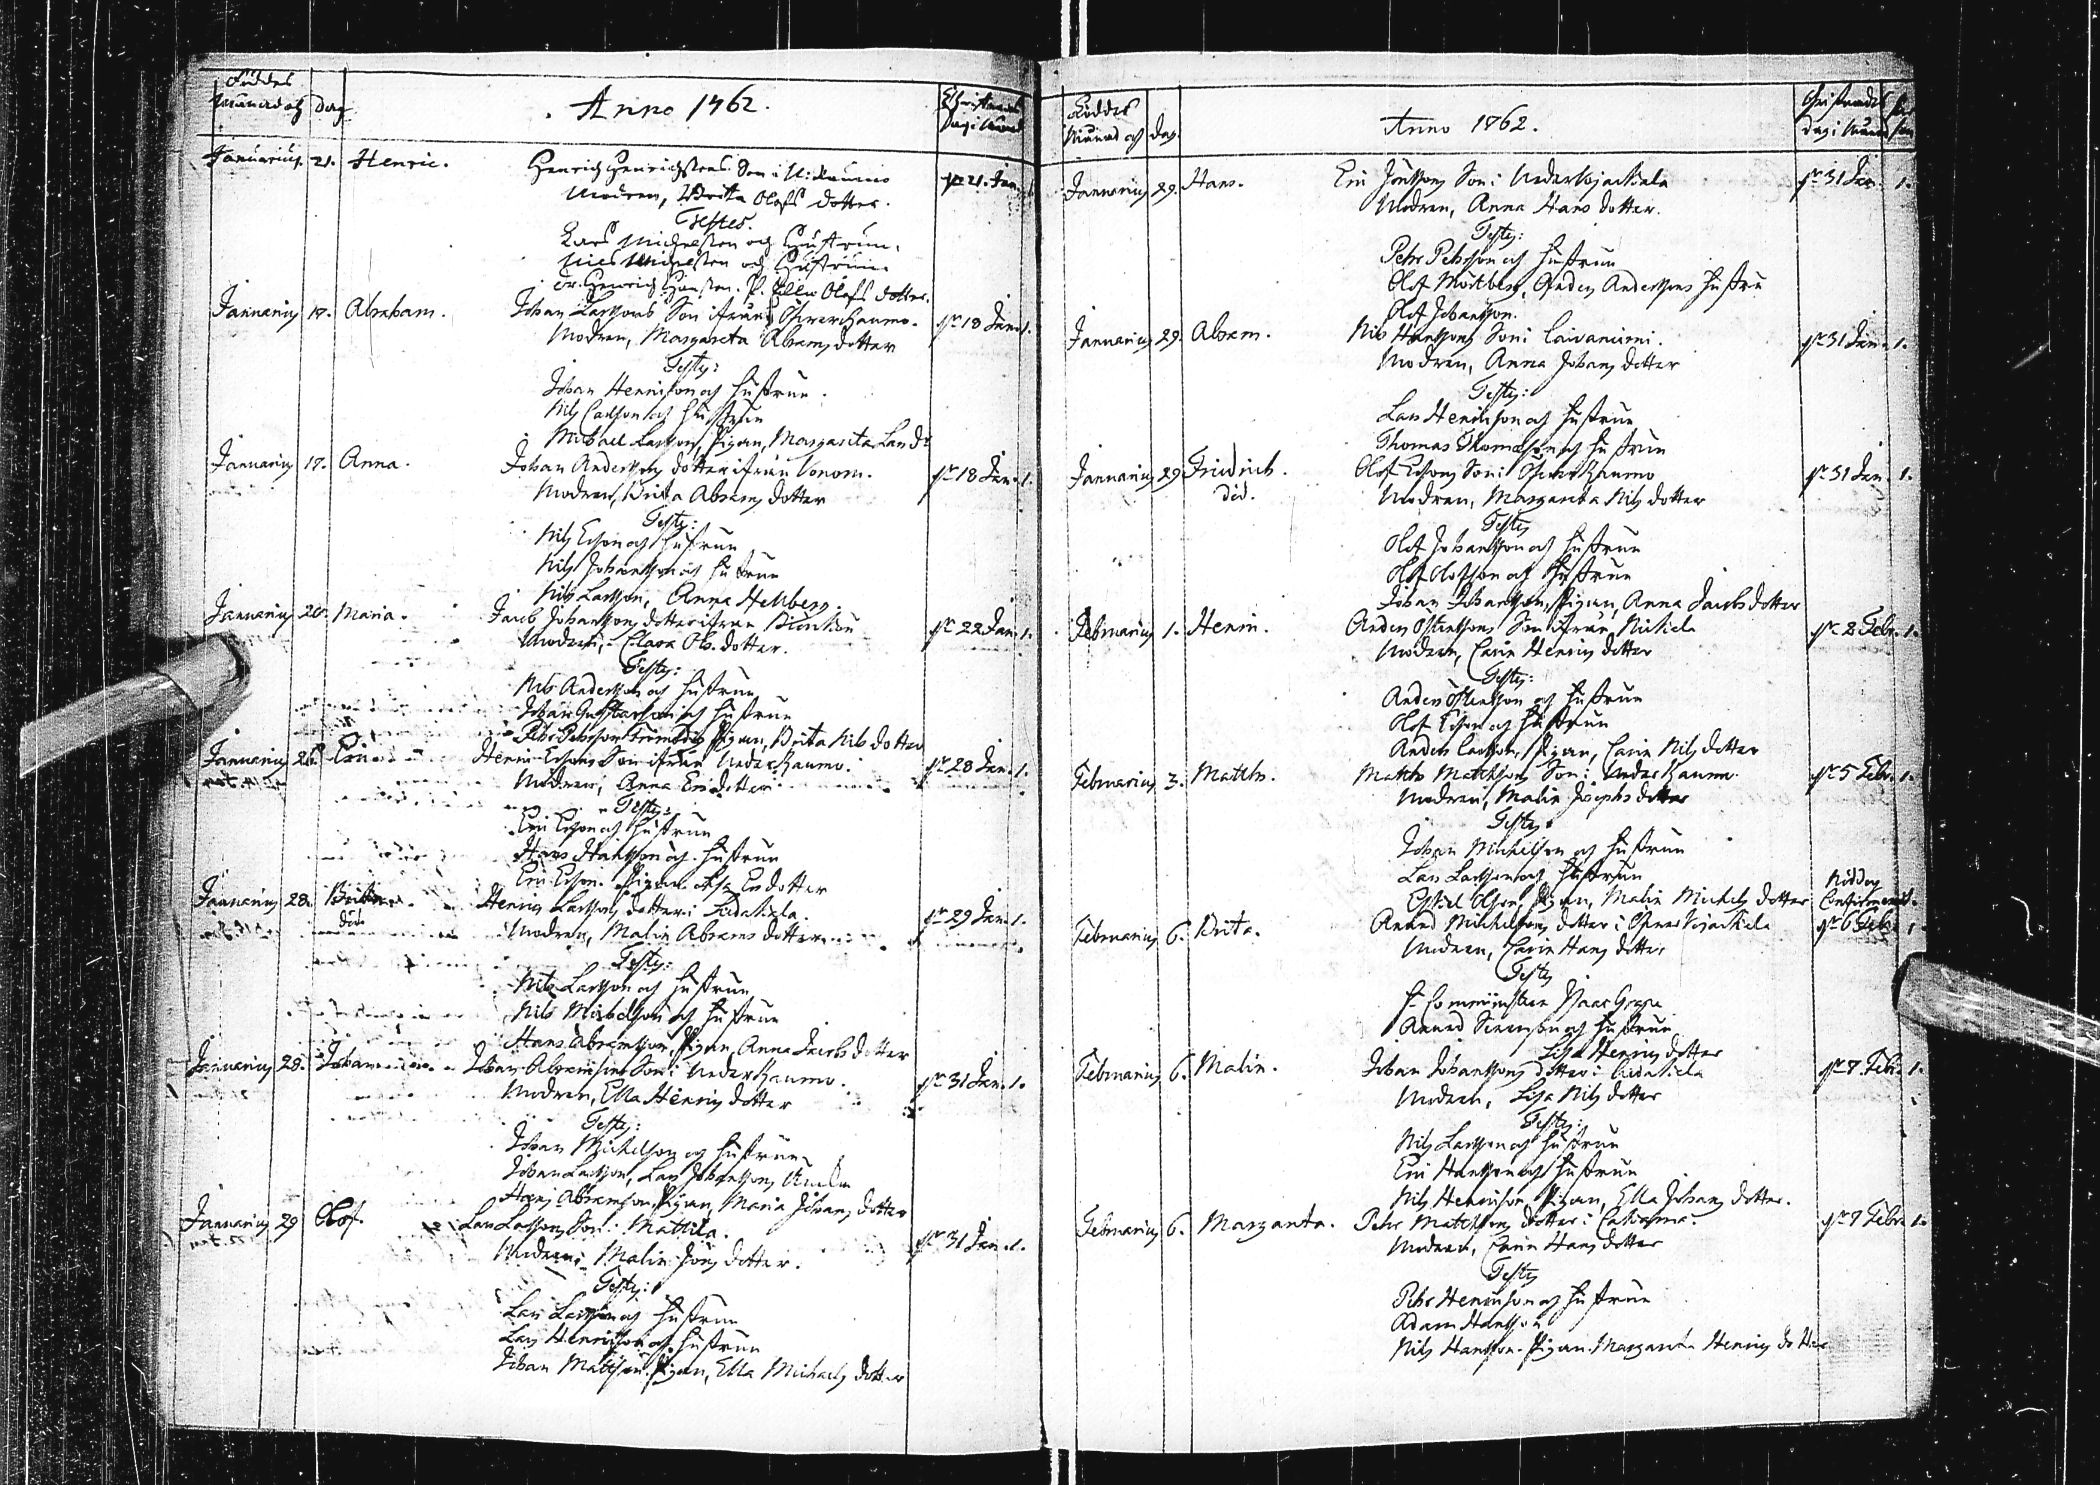 Föddes
Månad och dag
Anno 1762.
Christnades
Dag i Månad
Januarius. 21. Henric. Henrich Henrichssons Son i N: Raumo d. 21. Jan. 1.
Modren, Brita Olofs dotter.
Testes.
Lars Michelsson och Hustrun.
Nils Michelsson och Hustrun.
Dr. Henrich Hansson. P. Ella Olofs dotter.
Januarius 17. Abraham. Johan Larssons Son ifrån Öfver Raumo. d. 18 Jan. 1.
Modren, Margareta Abrams dotter
Testes:
Johan Henricson och hustrun.
Nils Larsson och hustrun
Michael Larsson, Pigan, Margareta Lars dr
Januarius 17. Anna. Johan Anderssons dotter ifrån Vonom. d. 18 Jan. 1.
Modren, Brita Abrams dotter
Testes:
Nils Ersson och hustrun
Nils Johansson och hustrun
Nils Larsson, Anna Hellberg.
Januarius 20. Maria. Jacob Johanssons dotter ifrån d. 22 Jan. 1.
Modren, Clara Ols dotter.
Testes:
Nils Andersson och hustrun
Johan Gustafson och hustrun
Pehr Pehrsson Pigan, Brita Nils dotter
Januarius 26. Eric Henric Erssons Son ifrån Neder Raumo. d. 28 Jan. 1.
Modren, Anna Erics dotter
Testes:
Eric Ersson och hustrun
Hans Hansson och hustrun
Eric Ersson. Pigan Ers dotter
Januarius 28. Brita Henric Larssons dotter i d. 29 Jan. 1.
död
Modren, Malin Abrams dotter
Testes:
Nils Larsson och hustrun
Nils Michelsson och hustrun
Hans Abramsson, Pigan, Anna Jacobs dotter
Januarius 28. Johan Johan Abramsons Son i Neder Raumo. d. 31 Jan. 1.
Modren, Ella Henrics dotter
Testes:
Johan Michelson och hustrun
Johan Larsson, Lars Johanssons
Hans Abramson, Pigan, Maria Johans dotter
Januarius 29 Olof. Lars Larssons Son i Mattila. d. 31 Jan. 1.
Modren, Malin Jöns dotter.
Testes:
Lars Larsson och hustrun
Lars Henricsson och hustrun
Johan Matsson. Pigan, Ella Michaels dotter
Föddes
Månad och dag.
Anno 1762.
Christnades
dag i Månad
Januarius 29. Hans. Eric Jönssons Son i Neder Vojackala d. 31 Jan. 1.
Modren, Anna Hans dotter.
Testes:
Pehr Pehrsson och hustrun
Olof Mörtberg, Anders Anderssons hustru
Olof Johansson.
Januarius 29. Abram. Nils Hanssons Son i Laivaniemi. d. 31 Jan. 1.
Modren, Anna Johans dotter
Testes:
Lars Henricsson och hustrun
Thomas Thomasson och hustrun
Januarius 29 Friedrich. Olof Erssons Son i Öfver Raumo d. 31 Jan. 1.
död.
Modren, Margareta Nils dotter
Testes
Olof Johansson och hustrun
Olof Olofsson och hustrun
Johan Johansson, Pigan, Anna Jacobs dotter
Februarius 1. Henric. Anders Östenssons Son ifrån d. 2 Febr. 1.
Modren, Carin Henrics dotter
Testes:
Anders Östensson och hustrun
Olof Ersson och hustrun
Anders Larsson, Pigan, Carin Nils dotter
Februarius 3. Matths. Matths Matthssons Son i Neder Raumo. d. 5 Febr. 1.
Modren, Malin Josephs dotter
Testes
Johan Michelsson och hustrun
Lars Larsson och hustrun
Eskel Olsson, Pigan, Malin Michels dotter
Nöddop
Confirmerat.
Februarius 6. Brita. Anund Michelssons dotter i Öfver Vojackala d. 6 Febr. 1.
Modren, Carin Hans dotter
Testes
Hr Comministern Isaac Grape
Anund Simonsson och hustrun
Lisa Henrics dotter
Februarius 6. Malin. Johan Johanssons dotter i d. 7 Febr. 1.
Modren, Lisa Nils dotter
Testes:
Nils Larsson och hustrun
Eric Hansson och hustrun
Nils Henricsson, Pigan, Ella Johans dotter.
Februarius 6. Margareta. Pehr Matthssons dotter i d. 7 Febr. 1.
Modren, Carin Hans dotter
Testes
Pehr Henricsson och hustrun
Adam Hansson
Nils Hansson. Pigan. Margareta Henrics dotter